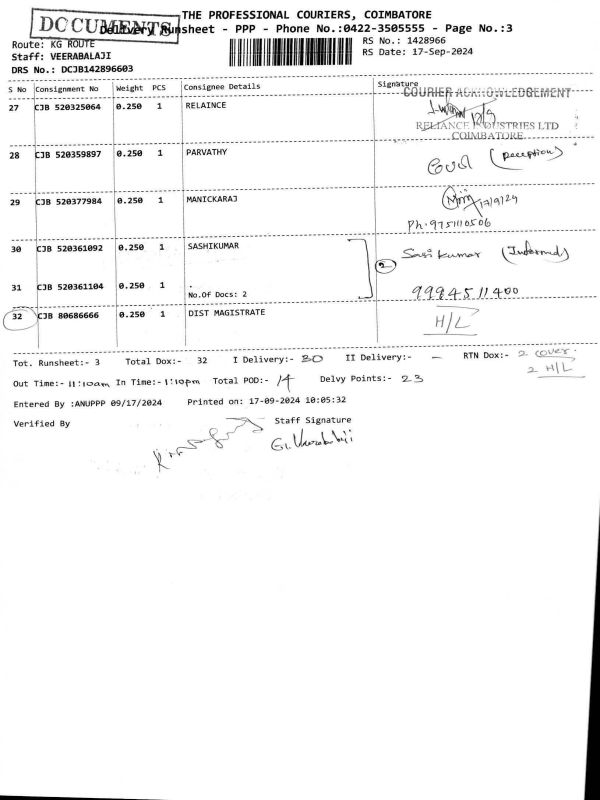 THE PROFESSIONAL COURIERS, COIMBATORE
DOCUMENTS
Delivery Runsheet - PPP - Phone No.:0422-3505555 - Page No.:3
Route: KG ROUTE
RS No.: 1428966
Staff: VEERABALAJI
RS Date: 17-Sep-2024
DRS No.: DCJB142896603
S No Consignment No Weight PCS Consignee Details Signature
COURIER ACKNOWLEDGEMENT
27 CJB 520325064 0.250 1 RELAINCE
RELIANCE INDUSTRIES LTD
COIMBATORE
28 CJB 520359897 0.250 1 PARVATHY
(Reception)
29 CJB 520377984 0.250 1 MANICKARAJ
17/9/24
Ph. 9751110506
30 CJB 520361092 0.250 1 SASHIKUMAR
Sasi kumar (Informed)
2
31 CJB 520361104 0.250 1 .
No.Of Docs: 2
9994511400
32 CJB 80686666 0.250 1 DIST MAGISTRATE
H/L
Tot. Runsheet:- 3 Total Dox:- 32 I Delivery:- 30 II Delivery:- - RTN Dox:- 2 cover.
2 H/L
Out Time:- 11:10am In Time:- 1:10pm Total POD:- 14 Delvy Points:- 23
Entered By :ANUPPP 09/17/2024 Printed on: 17-09-2024 10:05:32
Verified By
Staff Signature